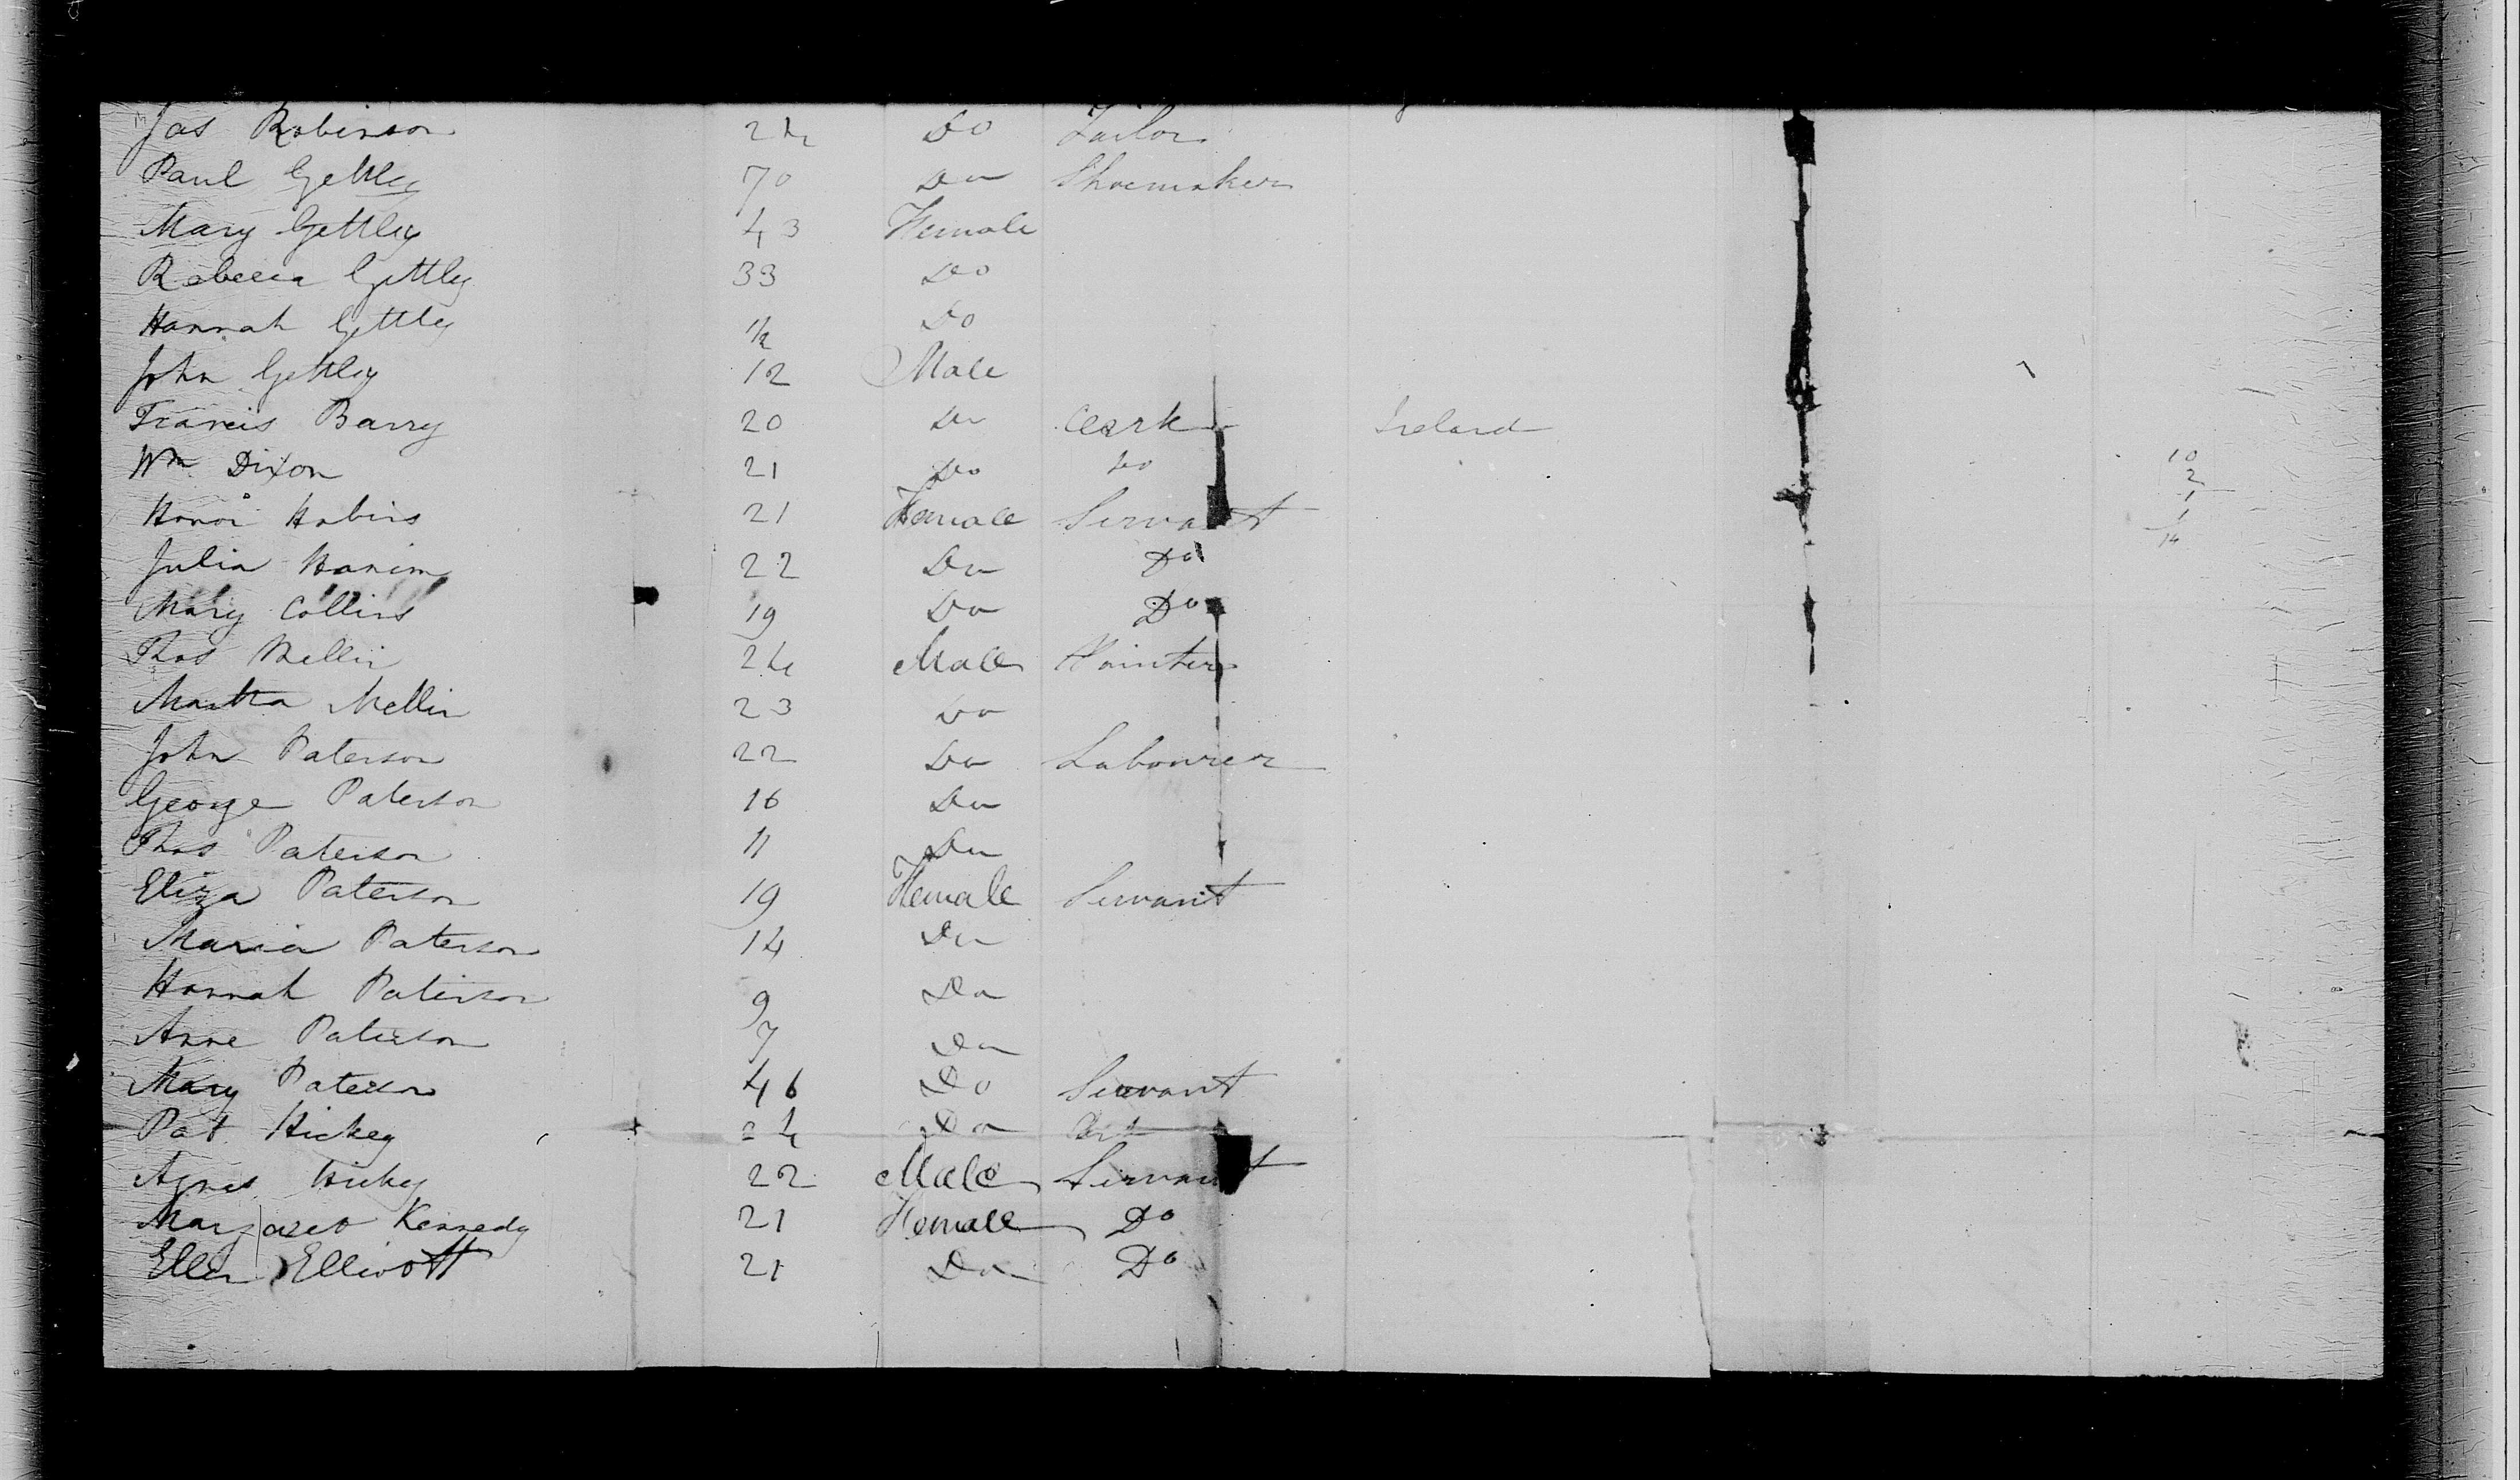 Jas Robinson 24 Do Tailor
Paul Gettley 70 Do Shoemaker
Mary Gettley 43 Female
Rebecca Gettley 33 Do
Hannah Gettley 1/2 Do
John Gettley 12 Male
Francis Barry 20 Do Clerk Ireland
Wm Dixon 21 Do Do 10
2
1
Honor 21 Female Servant 1
14
Julia 22 Do Do
Mary Collins 19 Do Do
Thos Mellin 24 Male Painter
Martha Mellin 23 Do
John Paterson 22 Do Labourer
George Paterson 16 Do
Thos Paterson 11 Do
Eliza Paterson 19 Female Servant
Maria Paterson 14 Do
Hannah Paterson 9 Do
Anne Paterson 7 Do
Mary Paterson 46 Do Servant
Pat Hickey 24 Do
Agnes Hickey 22 Male Servant
Margaret Kennedy 21 Female Do
Ellen Elliott 21 Do Do